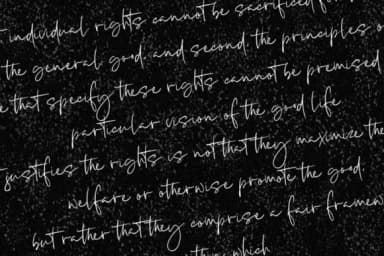 individual rights cannot be sacrificed
the general good, and second, the principles
that specify these rights cannot be premised
particular vision of the good life
justifies the rights is not that they maximize the
welfare or otherwise promote the good,
but rather that they comprise a fair
which